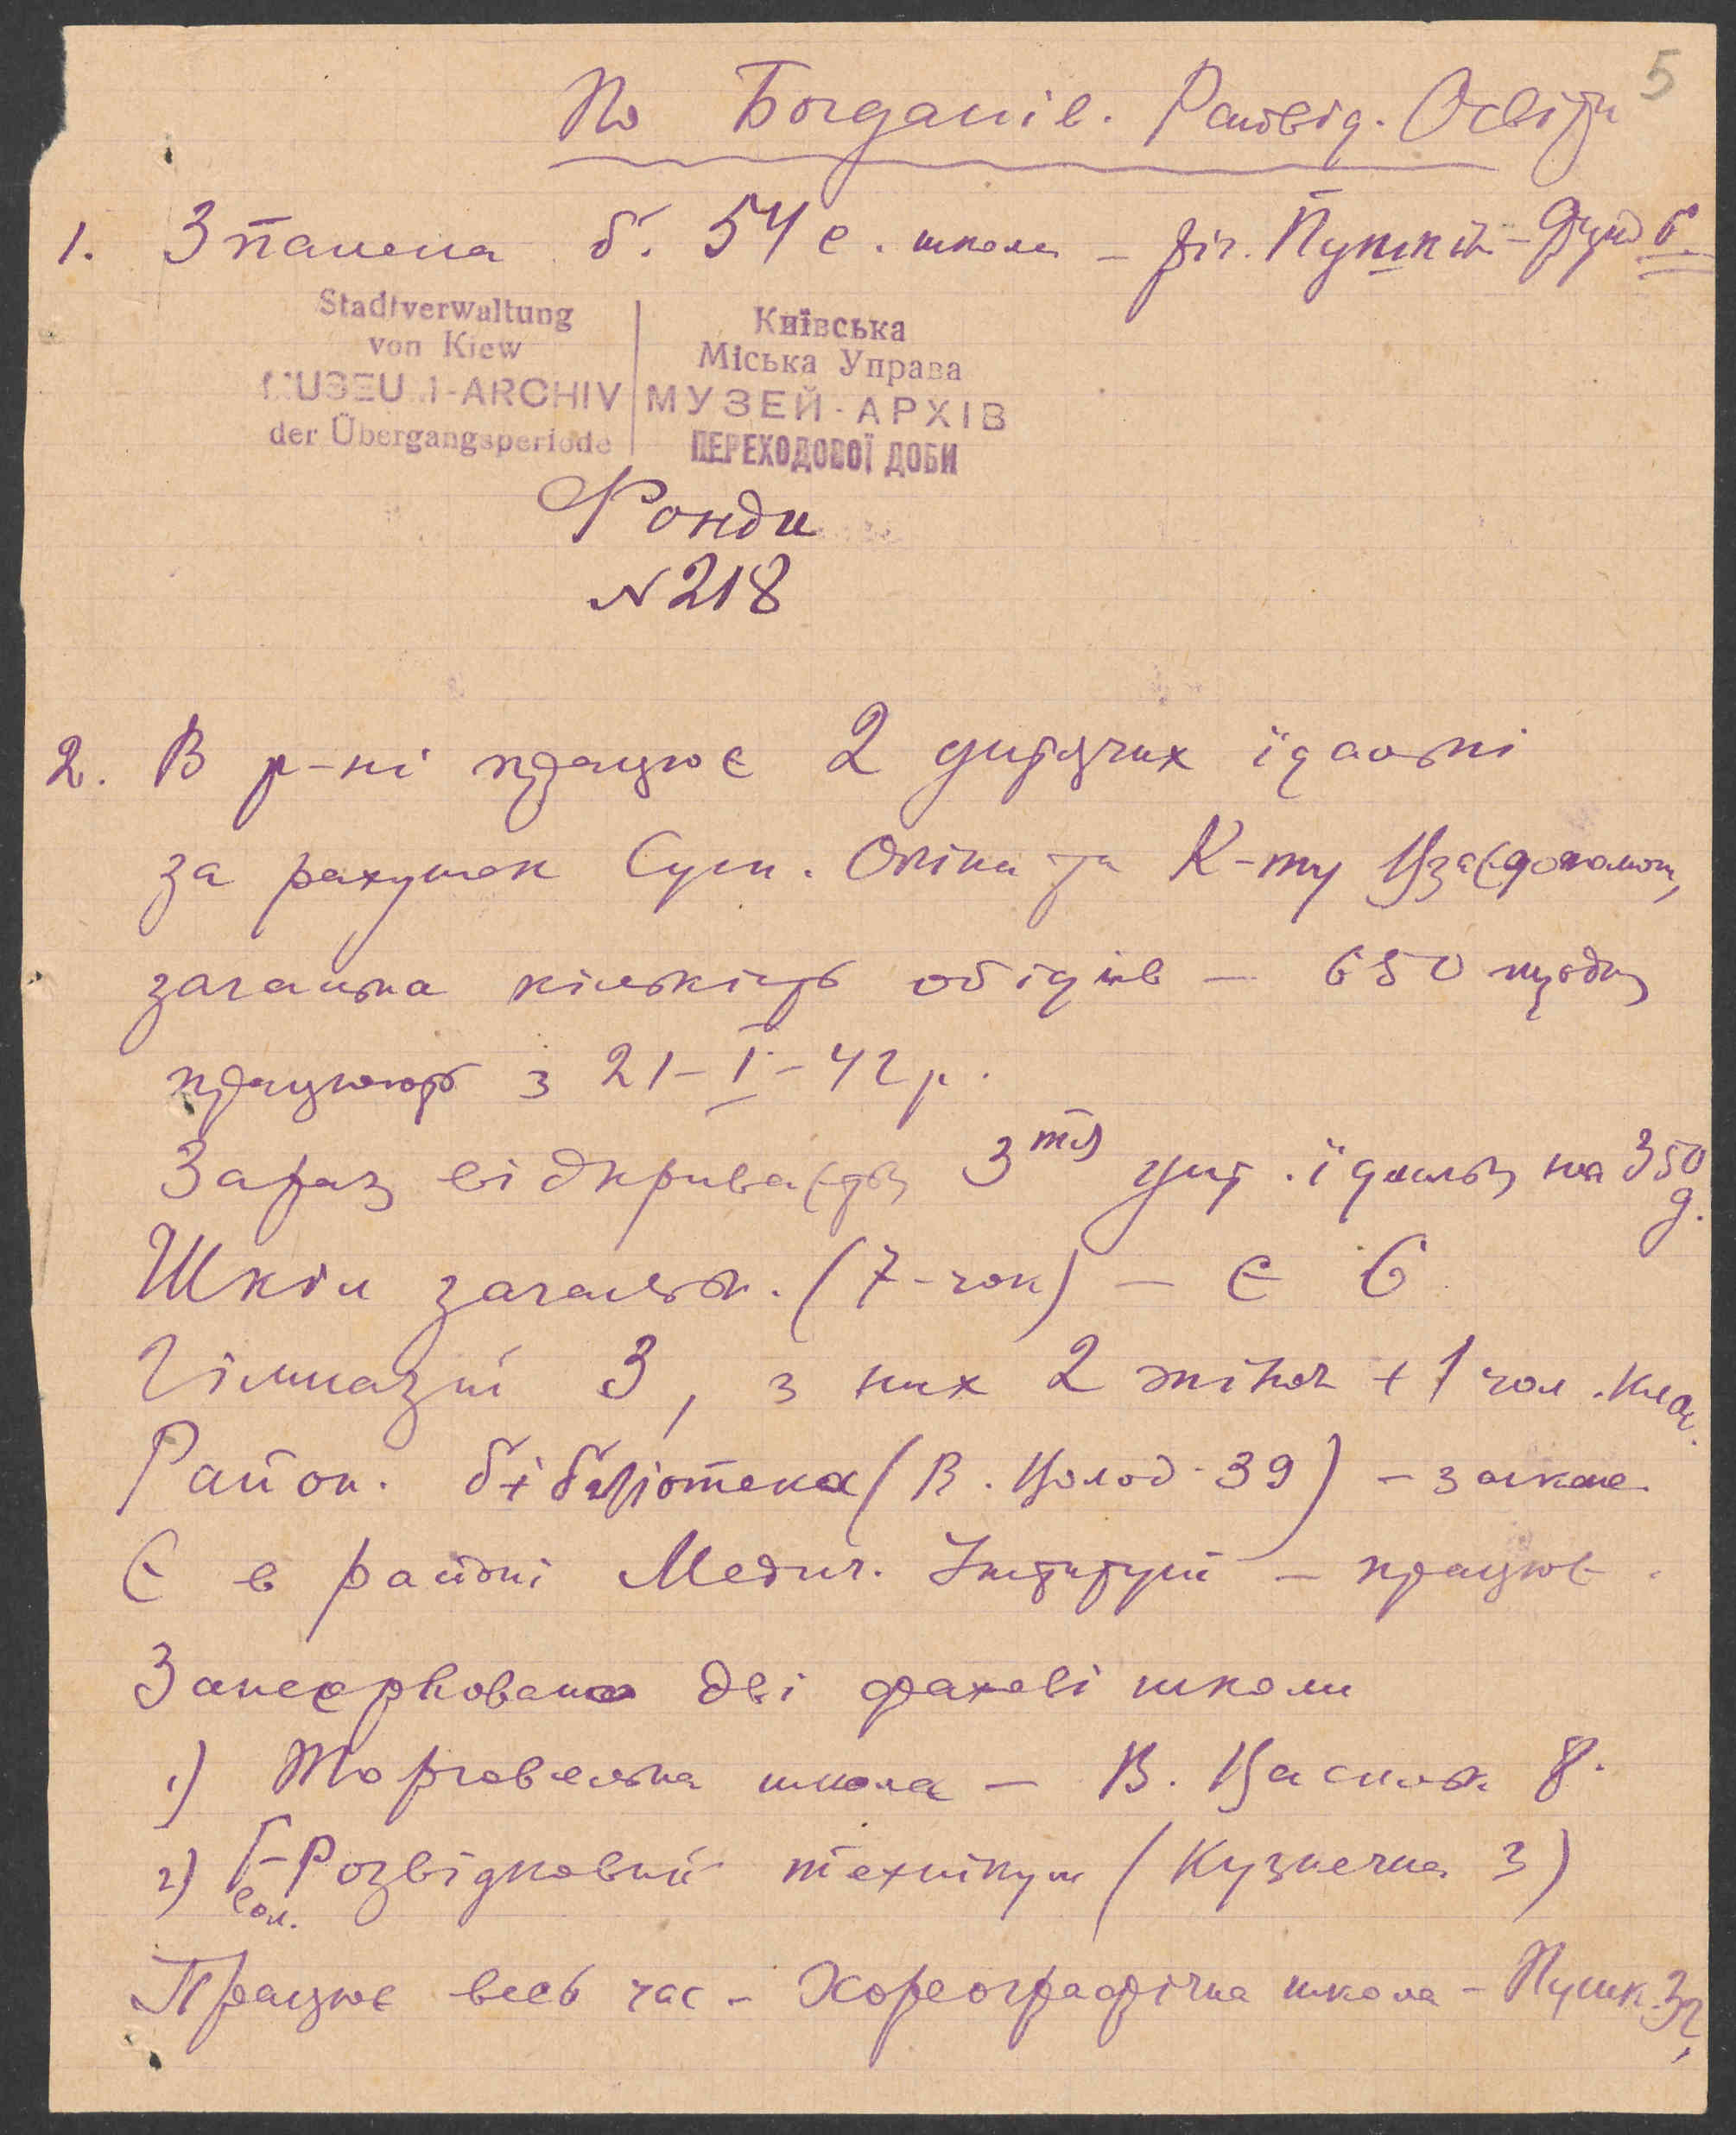 5
По Богданів. Райвід. Освіти
1. Зпалена б. 54 с. школа - ріг. Пушкін - Фунд
Stadtverwaltung
von Kiew
MUSEUM-ARCHIV
der Übergangsperiode
Київська
Міська Управа
МУЗЕЙ-АРХІВ
ПЕРЕХОДОВОЇ ДОБИ
Фонди
№ 218
2. В р-ні працює 2 дитячих їдальні
за рахунок Сусп. Опіки та К-ту Взаєдопомоги,
загальна кількість обідів - 650 щодня,
працюють з 21-I-42 р.
Зараз відкриваєть 3тя дит. їдальня на 350 д.
Шкіл загальн. (7-чок) - є 6
Гімназій 3, з них 2 жіноч + 1 чол. кла.
Район. бібліотека (В. Волод. 39) -
Є в районі Медич. Інститут - працює.
Законсервовано дві фахові школи
1) Торговельна школа - В. Васильк. 8.
2) Г-Розвідковий технікум (Кузнечна 3)
Працює весь час - Хореографічна школа - Пушк. 32,